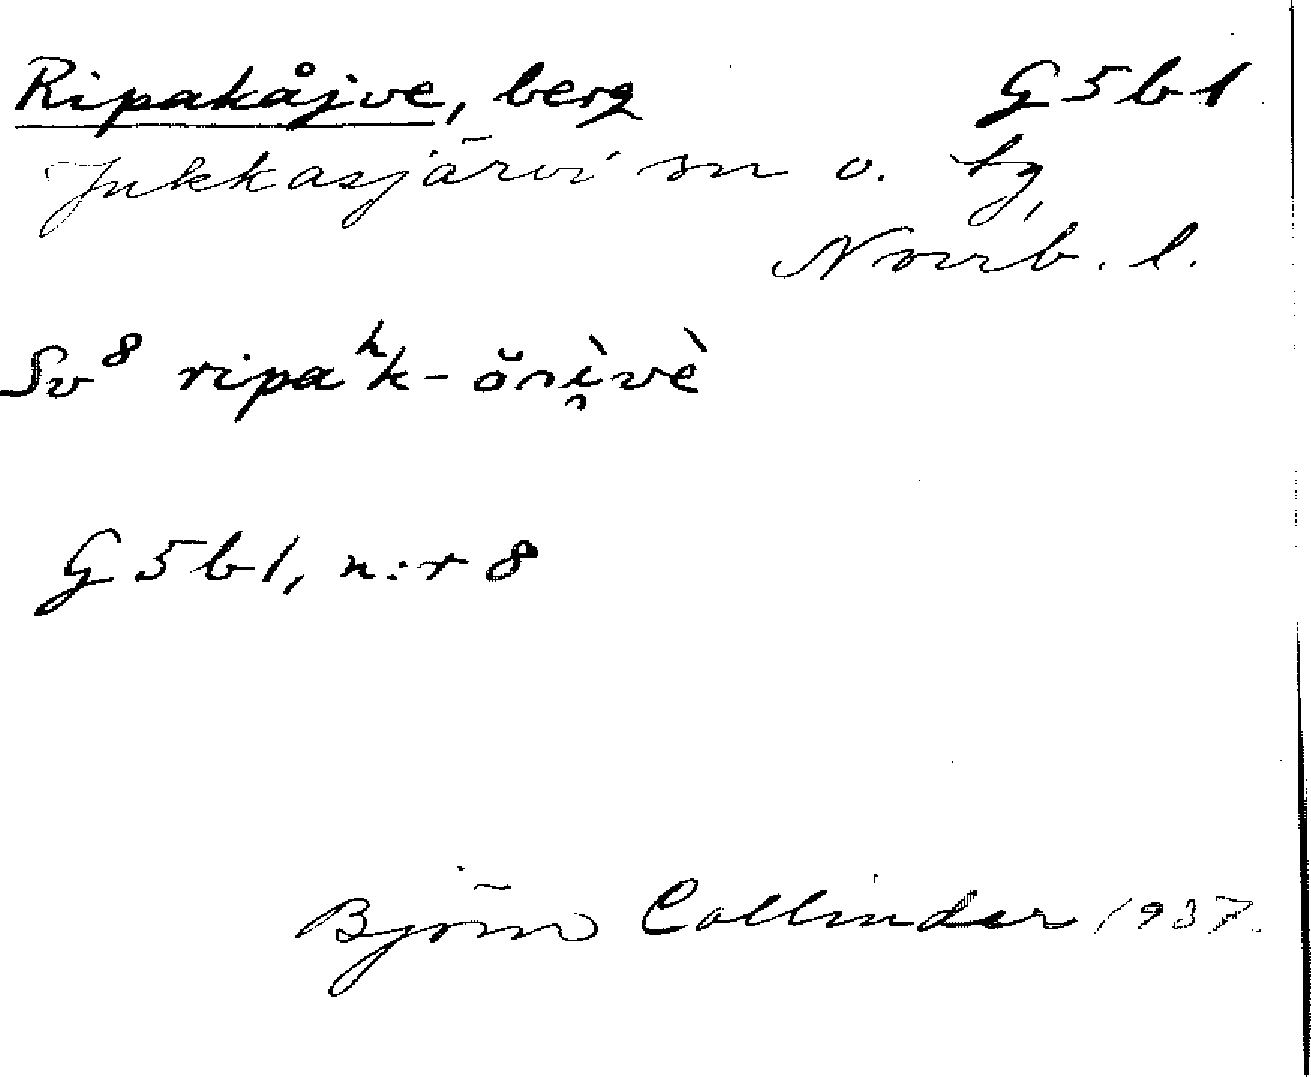 Ripakåjve, berg G5b1
Jukkasjärvi sn o. tg,
Norrb. l.
Sv⁸ ripaʰk-
G5b1, n:r 8
Björn Collinder 1937.